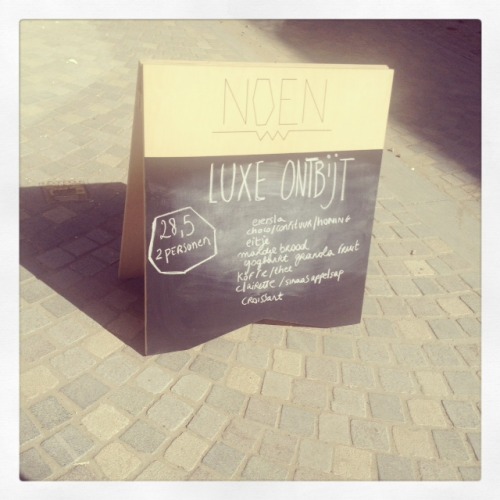 NOEN
LUXE ONTBIJT
28,5
2 PERSONEN
eiersla
choco/confituur/honing
eitje
mandje brood
yoghurt granola fruit
koffie/thee
clairette/sinaasappelsap
croissant